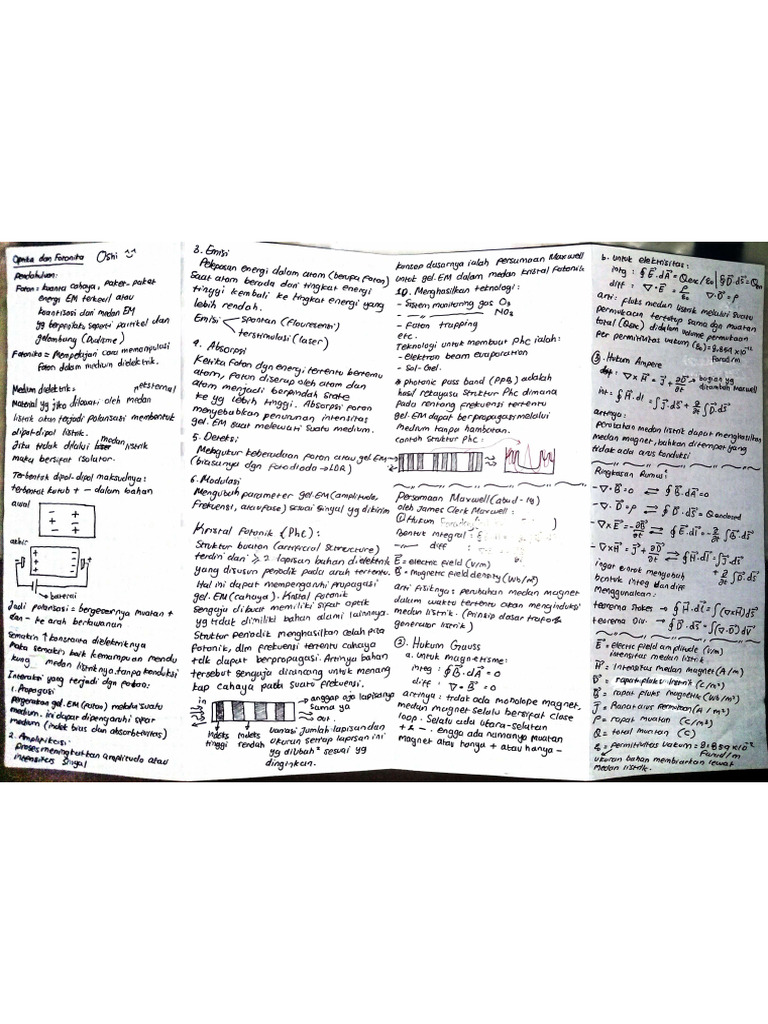 Optika dan Fotonika Oshi
Pendahuluan:
Foton = kuanta cahaya, paket-paket
energi EM terkecil atau
kuantisasi dari medan EM
yg berperilaku seperti partikel dan
gelombang (Dualisme)
Fotonika = Mempelajari cara memanipulasi
foton dalam medium dielektrik.
Medium dielektrik =
Material yg jika dilewati oleh medan
listrik akan terjadi polarisasi membentuk
dipol-dipol listrik.
Jika tidak dilalui medan listrik
maka bersifat isolator.
Terbentuk dipol-dipol maksudnya:
terbentuk kutub + - dalam bahan
awal
akhir
baterai
Jadi polarisasi = bergesernya muatan +
dan - ke arah berlawanan
Semakin ↑ konstanta dielektriknya
Maka semakin baik kemampuan mendu
kung medan listriknya, tanpa konduksi
Interaksi yang terjadi dgn foton:
1. Propagasi
pergerakan gel. EM (foton) melalui suatu
medium. ini dapat dipengaruhi sifat
medium (indek bias dan absorbtivitas)
2. Amplifikasi:
proses meningkatkan amplitudo atau
intensitas sinyal
3. Emisi
Pelepasan energi dalam atom (berupa foton)
Saat atom berada dari tingkat energi
tinggi kembali ke tingkat energi yang
lebih rendah.
Emisi spontan (flouresensi)
terstimulasi (laser)
4. Absorpsi
Ketika foton dgn energi tertentu bertemu
atom, foton diserap oleh atom dan
atom menjadi berpindah state
ke yg lebih tinggi. Absorpsi foton
menyebabkan penurunan intensitas
gel. EM saat melewati suatu medium.
5. Deteksi
Mengukur keberadaan foton atau gel. EM
(biasanya dgn fotodioda → LDR)
6. Modulasi
Mengubah parameter gel. EM (amplitudo,
Frekuensi, atau fase) sesuai sinyal yg dikirim
Kristal fotonik (PhC):
Struktur buatan (artificial structure)
terdiri dari ≥ 2 lapisan bahan dielektrik
yang disusun periodik pada arah tertentu.
Hal ini dapat mempengaruhi propagasi
gel. EM (cahaya). Kristal fotonik
sengaja dibuat memiliki sifat optik
yg tidak dimiliki bahan alami lainnya.
Struktur periodik menghasilkan celah pita
fotonik, dlm frekuensi tertentu cahaya
tdk dapat berpropagasi. Artinya bahan
tersebut sengaja dirancang untuk menang
kap cahaya pada suatu frekuensi.
in
anggap aja lapisannya
sama ya
out
Indeks tinggi
Indeks rendah
variasi jumlah lapisan dan
ukuran setiap lapisan ini
yg dibuah² sesuai yg
diinginkan.
konsep dasarnya ialah persamaan Maxwell
untuk gel. EM dalam medan kristal fotonik
10. Menghasilkan teknologi:
- Sistem monitoring gas O₃
NO₂
- Foton trapping
etc.
Teknologi untuk membuat PhC ialah:
- Elektron beam evaporation
- Sol-Gel.
* photonic pass band (PPB) adalah
hasil rekayasa struktur PhC dimana
Pada rentang frekuensi tertentu
gel. EM dapat berpropagasi melalui
medium tanpa hambatan.
contoh Struktur PhC:
Persamaan Maxwell (abad-19)
oleh James Clerk Maxwell:
① Hukum
Bentuk integral:
diff :
E⃗ = electric field (V/m)
B⃗ = magnetic field density (Wb/m²)
arti fisiknya: perubahan medan magnet
dalam waktu tertentu akan menginduksi
medan listrik. (Prinsip dasar trafo &
generator listrik)
② Hukum Gauss
a. Untuk magnetisme:
integ : ∮ B⃗ . dA⃗ = 0
diff : ∇ . B⃗ = 0
artinya: tidak ada monolope magnet.
medan magnet selalu bersifat close
loop. Selalu ada utara-selatan
+ & -. engga ada namanya muatan
magnet atau hanya + atau hanya -
b. Untuk elektrisitas:
integ : ∮ E⃗ . dA⃗ = Qenc/ε₀ | ∮ D⃗ . ds⃗ = Qen
diff : ∇ . E⃗ = ρ/ε₀ ∇ . D⃗ = ρ
arti: fluks medan listrik melalui suatu
permukaan tertutup sama dgn muatan
total (Qenc) di dalam volume permukaan
per permitivitas vakum (ε₀) = 8.854 × 10⁻¹²
Farad/m
③ Hukum Ampere
diff : ∇ × H⃗ = J⃗ + ∂D⃗/∂t → bagian yg
ditambah Maxwell
int = ∮ H⃗ . dl = ∫ J⃗ . ds⃗ + ∂/∂t ∫ D⃗ . ds
artinya:
perubahan medan listrik dapat menghasilkan
medan magnet, bahkan di tempat yang
tidak ada arus konduksi
Ringkasan Rumus:
- ∇ . B⃗ = 0 ⇄ ∮ B⃗ . dA⃗ = 0
- ∇ . D⃗ = ρ ⇄ ∮ D⃗ . ds⃗ = Q enclosed
- ∇ × E⃗ = -∂B⃗/∂t ⇄ ∮ E⃗ . dl⃗ = -∂/∂t ∫ B⃗ . ds⃗
- ∇ × H⃗ = J⃗ + ∂D⃗/∂t ⇄ ∮ H⃗ . dl⃗ = ∫ J⃗ . ds⃗
+ ∂/∂t ∫ D⃗ . ds⃗
ingat untuk mengubah
bentuk integ dan diff
Menggunakan:
teorema Stokes → ∮ H⃗ . dl⃗ = ∫ (∇×H⃗) ds⃗
teorema Div. → ∮ D⃗ . ds⃗ = ∫ (∇ . D⃗) dV
E⃗ = electric field amplitude (V/m)
intensitas medan listrik
H⃗ = Intensitas medan magnet (A/m)
D⃗ = rapat fluks listrik (C/m²)
B⃗ = rapat fluks magnetik (Wb/m²)
J⃗ = Rapat arus (A/m²)
ρ = rapat muatan (C/m³)
Q = total muatan (C)
ε₀ = permitivitas vakum = 8.854 × 10⁻¹²
Farad/m
ukuran bahan membiarkan lewat
medan listrik.